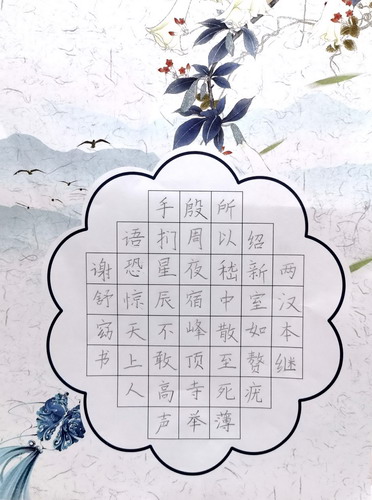 两汉本继
绍新室如赘疣
所以嵇中散至死薄
殷周夜宿峰顶寺举
手扪星辰不敢高声
语恐惊天上人
谢舒窈书